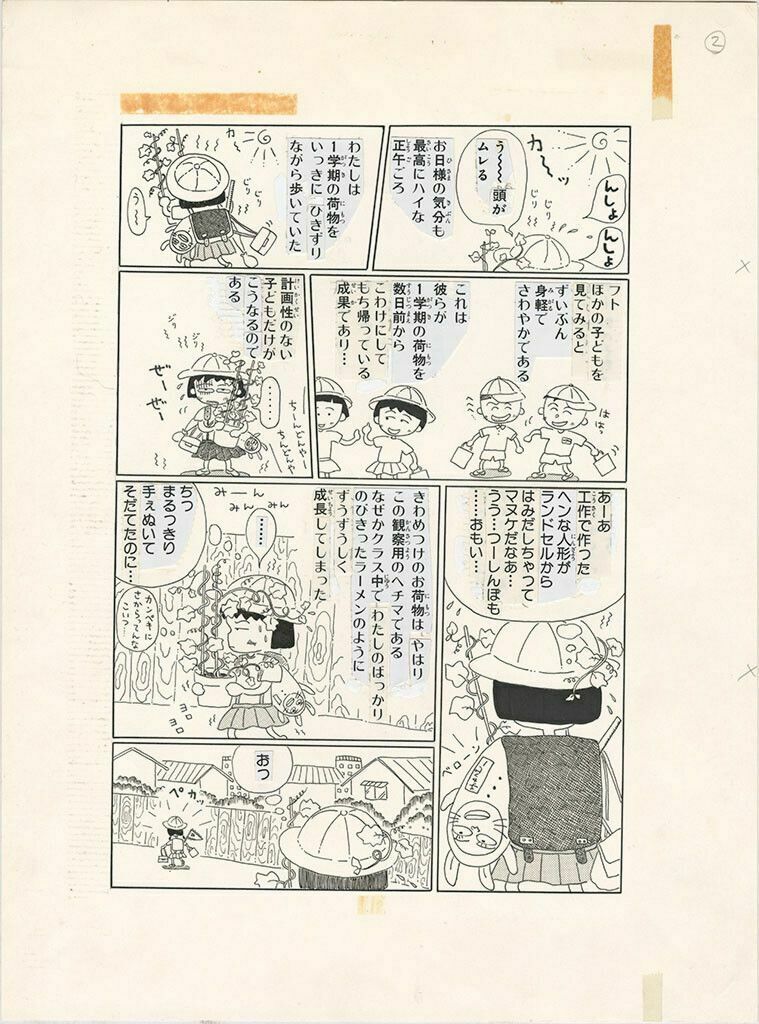 ②
んしょ
んしょ
カ〜〜ッ
じりじり
う〜〜〜頭が
ムレる
お日様の気分も
最高にハイな
正午ごろ
わたしは
1学期の荷物を
いっきに ひきずり
ながら歩いていた
カ〜
じりじり
じりじり
う〜
フト
ほかの子どもを
見てみると
ずいぶん
身軽で
さわやかである
これは
彼らが
1学期の荷物を
数日前から
こわけにして
もち帰っている
成果であり…
はは
計画性のない
子どもだけが
こうなるので
ある
ジリ
ジリ
ぜー
ぜー
……
ちーんどんやー
ちんどんや
あーあ
工作で作った
ヘンな人形が
ランドセルから
はみだしちゃって
マヌケだなあ…
うう…つーしんぼも
……おもい…
ベローン
きわめつけのお荷物は やはり
この観察用のヘチマである
なぜかクラス中で わたしのばっかり
のびきったラーメンのように
ずうずうしく
成長してしまった
みーん
みんみん
……
ちっ
まるつきり
手ぇぬいて
そだてたのに…
カンペキに
さからってんな
こいつ…
ヨロ
ヨロ
おっ
ペカッ